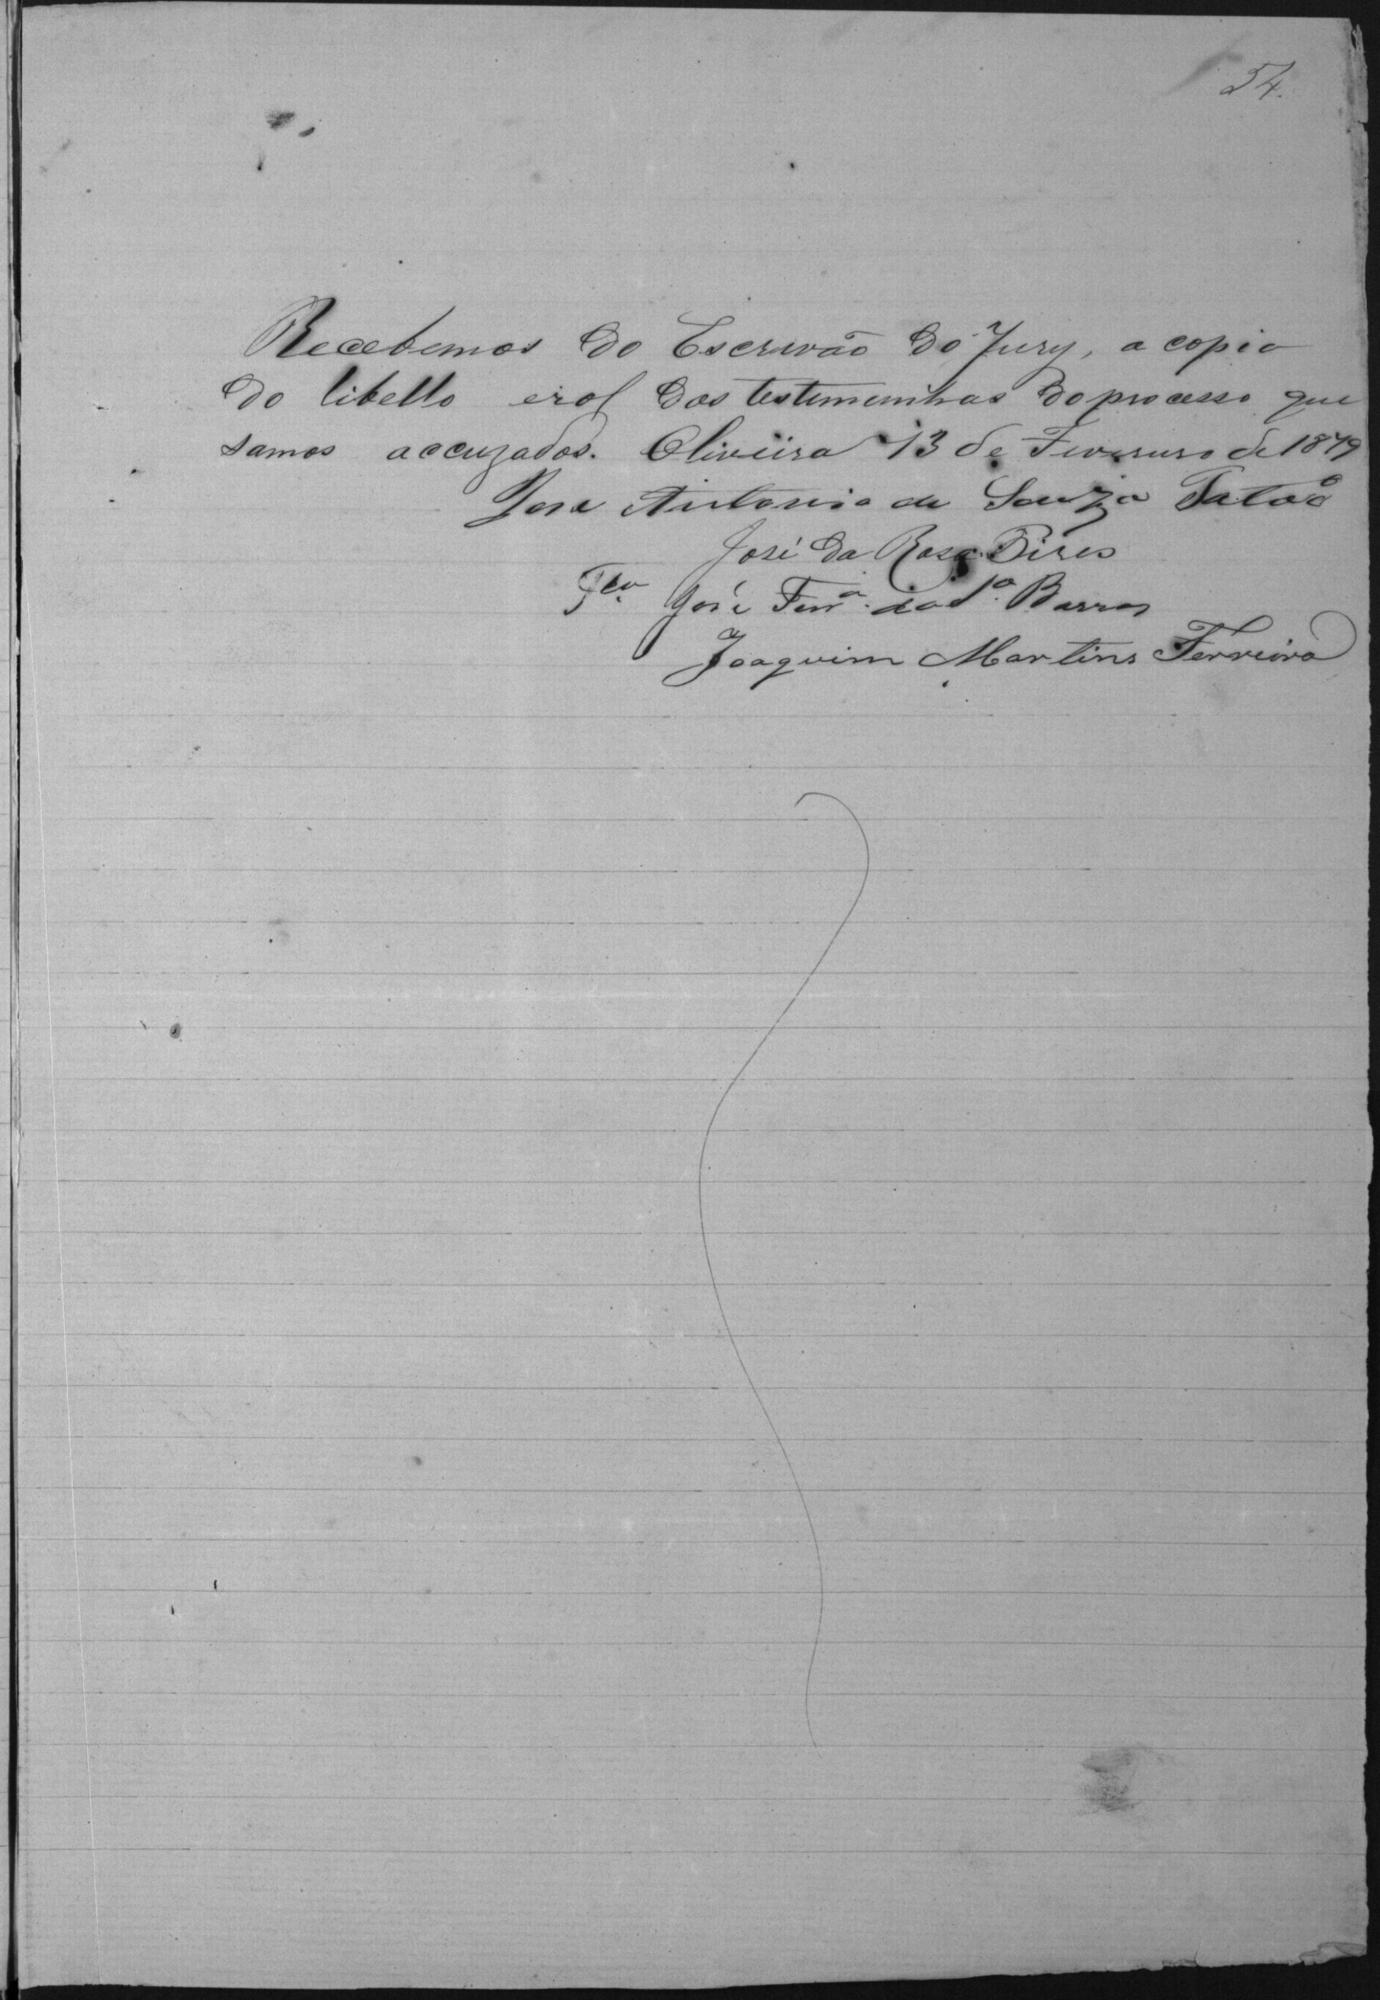 54.
Recebemos do Escrivão do Jury, a copia
do libello erol das testemunhas do processo que
samos accuzados. Oliveira 13 de Fevereiro de 1879
Jose Antonio de Souza
José da Rosa Pires
José Ferrª. da Sª. Barros
Joaquim Martins Ferreira